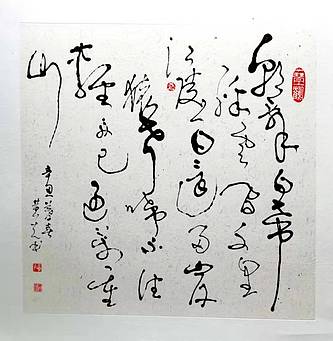 朝辞白帝
彩云间千里
江陵一日還两岸
猿声啼不住
轻舟已过万重
山
辛丑暮春